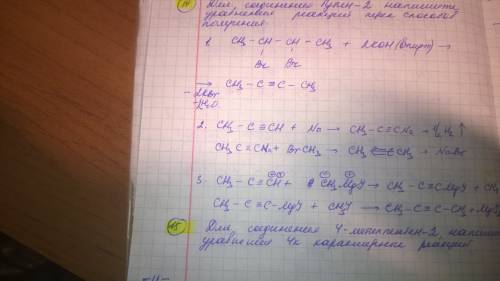 14 Для соединения Бутин-2 напишите
уравнения реакций трех способов
получения.
1. CH3 – CH – CH – CH3 + 2KOH (спирт) →
Br Br
→ CH3 – C ≡ C – CH3
- 2KBr
- 2H2O
2. CH3 – C ≡ CH + Na → CH3 – C ≡ CNa + ½ H2 ↑
CH3 C ≡ CNa + BrCH3 → CH3 C≡CCH3 + NaBr
3. CH3 – C ≡ CH + CH3MgY → CH3 – C ≡ CMgY + CH
CH3 – C ≡ C – MgY + CH3Y → CH3 – C ≡ C – CH3 + MgY
15 Для соединения 4-метилпентен-2, напишите
уравнения 4х характерных реакций